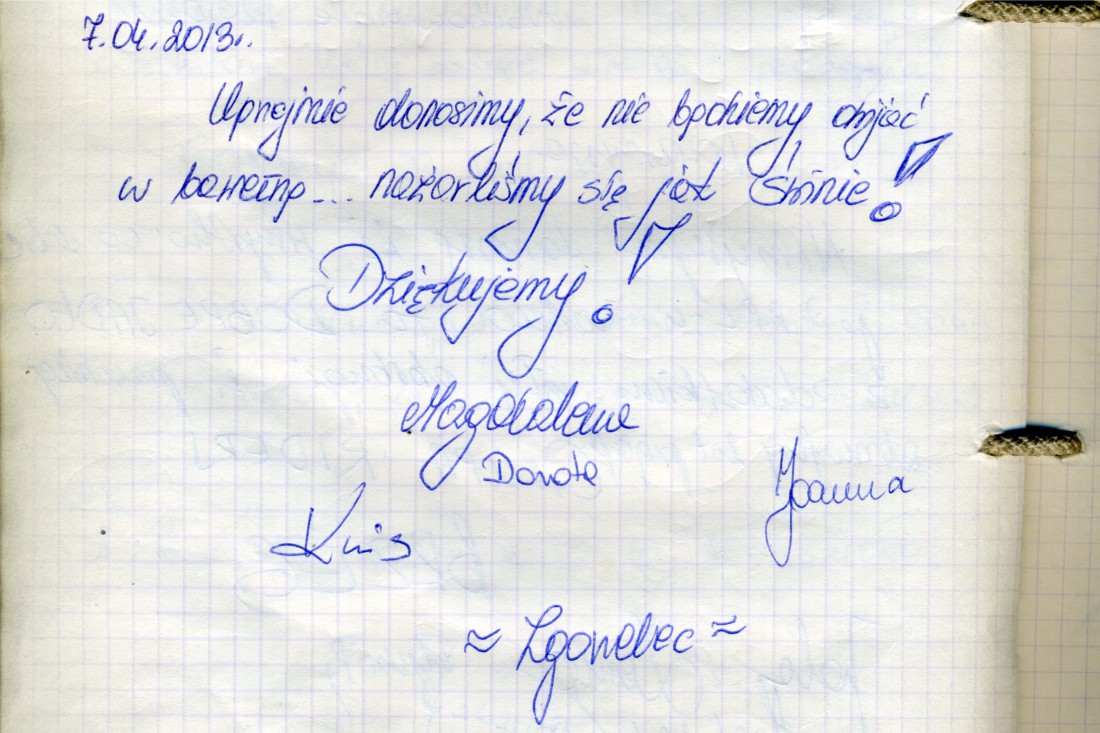 7.04.2013r.
Uprzejmie donosimy, że nie będziemy owijać
w bawełnę... nażarliśmy się jak świnie!
Dziękujemy!
Magdalena
Dorota
Joanna
Kris
≈ Zgorzelec ≈